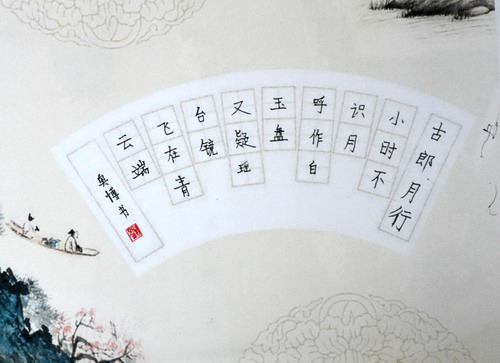 古郎月行
小时不
识月
呼作白
玉盘
又疑
台镜
飞在青
云端
奥博书